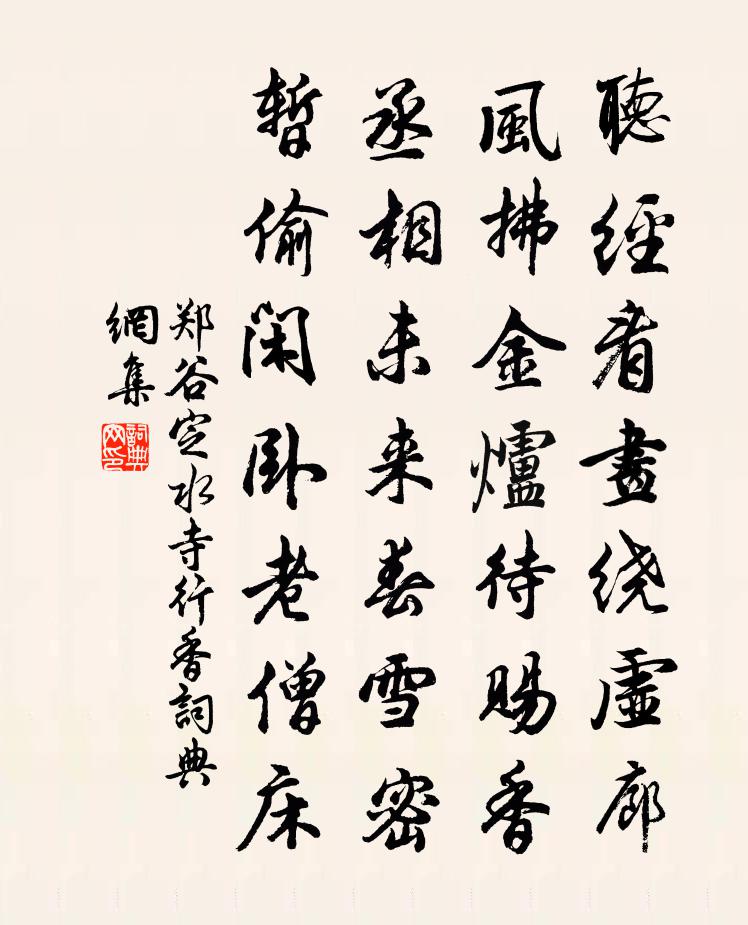 聽經看畫绕虛廊
風拂金爐待賜香
丞相未来春雪密
暫偷闲卧老僧床
郑谷定水寺行香詞典
網集
詞典
网印